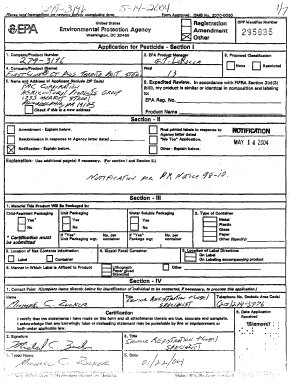 279-3196 5-14-2004 1/7
Please read instructions on reverse before completing form. Form Approved. OMB No. 2070-0060
EPA
United States
Environmental Protection Agency
Washington, DC 20460
Registration
Amendment
Other
OPP Identifier Number
295835
Application for Pesticide - Section I
1. Company/Product Number
279-3196
2. EPA Product Manager
3. Proposed Classification
None Restricted
4. Company/Product (Name)
PM#
13
5. Name and Address of Applicant (Include ZIP Code)
FMC Corporation
Agricultural Products Group
1735 Market Street
Philadelphia PA 19103
Check if this is a new address
6. Expedited Review. In accordance with FIFRA Section 3(c)(3)
(b)(i), my product is similar or identical in composition and labeling
to:
EPA Reg. No.
Product Name
Section - II
Amendment - Explain below.
Resubmission in response to Agency letter dated
Notification - Explain below.
Final printed labels in response to
Agency letter dated
"Me Too" Application.
Other - Explain below.
NOTIFICATION
MAY 14 2004
Explanation: Use additional page(s) if necessary. (For section I and Section II.)
Notification per PR Notice 98-10.
Section - III
1. Material This Product Will Be Packaged In:
Child-Resistant Packaging
Yes
No
* Certification must
be submitted
Unit Packaging
Yes
No
If "Yes"
Unit Packaging wgt.
No. per
container
Water Soluble Packaging
Yes
No
If "Yes"
Package wgt
No. per
container
2. Type of Container
Metal
Plastic
Glass
Paper
Other (Specify)
3. Location of Net Contents Information
Label Container
4. Size(s) Retail Container
5. Location of Label Directions
On Label
On Labeling accompanying product
6. Manner in Which Label is Affixed to Product
Lithograph
Paper glued
Stenciled
Other
Section - IV
1. Contact Point (Complete items directly below for identification of individual to be contacted, if necessary, to process this application.)
Name
Michael C. Zucker
Title
Senior Registration
Specialist
Telephone No. (Include Area Code)
Certification
I certify that the statements I have made on this form and all attachments thereto are true, accurate and complete.
I acknowledge that any knowingly false or misleading statement may be punishable by fine or imprisonment or
both under applicable law.
6. Date Application
Received
(Stamped)
2. Signature
Michael C. Zucker
3. Title
Senior Registration
Specialist
4. Typed Name
Michael C. Zucker
5. Date